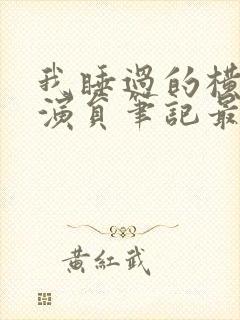 我睡過的橫
演員筆記最
黃紅武